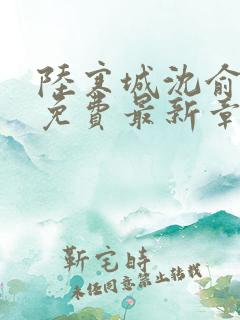 陸寒城沈俞
免費最新章
靳宅時
未经同意禁止转载